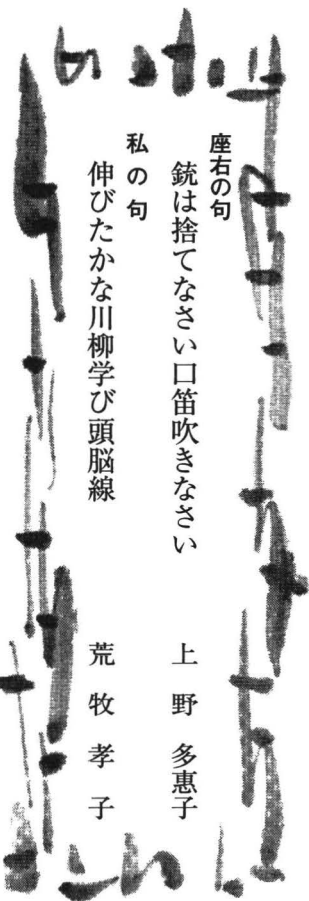 座右の句
銃は捨てなさい口笛吹きなさい　上野多惠子
私の句
伸びたかな川柳学び頭脳線　荒牧孝子